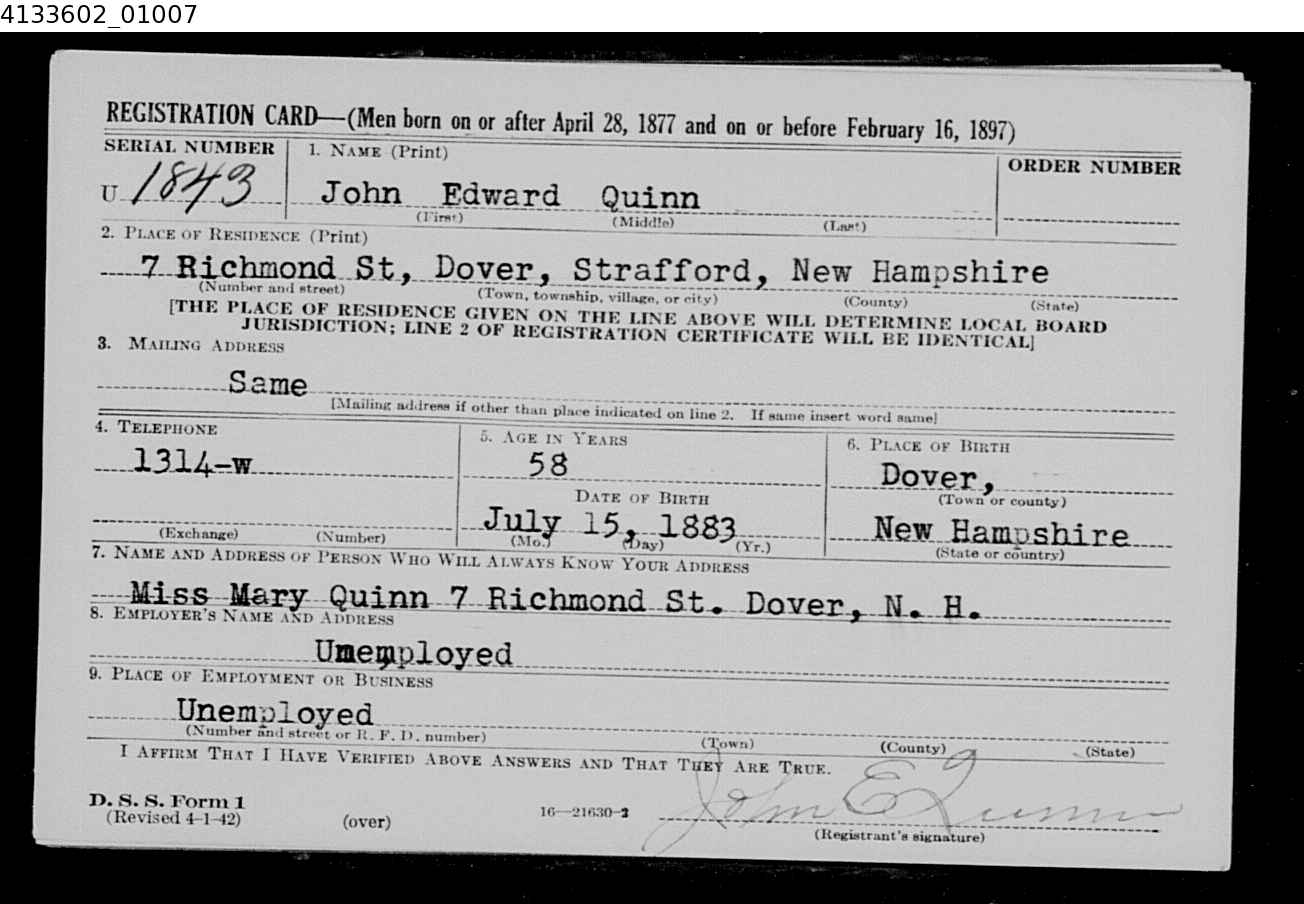 4133602_01007
REGISTRATION CARD—(Men born on or after April 28, 1877 and on or before February 16, 1897)
SERIAL NUMBER
1. NAME (Print)
ORDER NUMBER
U 1843
John Edward Quinn
(First) (Middle) (Last)
2. PLACE OF RESIDENCE (Print)
7 Richmond St, Dover, Strafford, New Hampshire
(Number and street) (Town, township, village, or city) (County) (State)
[THE PLACE OF RESIDENCE GIVEN ON THE LINE ABOVE WILL DETERMINE LOCAL BOARD
JURISDICTION; LINE 2 OF REGISTRATION CERTIFICATE WILL BE IDENTICAL]
3. MAILING ADDRESS
Same
[Mailing address if other than place indicated on line 2. If same insert word same]
4. TELEPHONE
1314-w
(Exchange) (Number)
5. AGE IN YEARS
58
DATE OF BIRTH
July 15, 1883
(Mo.) (Day) (Yr.)
6. PLACE OF BIRTH
Dover,
(Town or county)
New Hampshire
(State or country)
7. NAME AND ADDRESS OF PERSON WHO WILL ALWAYS KNOW YOUR ADDRESS
Miss Mary Quinn 7 Richmond St. Dover, N. H.
8. EMPLOYER'S NAME AND ADDRESS
Unemployed
9. PLACE OF EMPLOYMENT OR BUSINESS
Unemployed
(Number and street or R. F. D. number) (Town) (County) (State)
I AFFIRM THAT I HAVE VERIFIED ABOVE ANSWERS AND THAT THEY ARE TRUE.
D. S. S. Form 1
(Revised 4-1-42) (over) 16—21630-2
John E Quinn
(Registrant's signature)